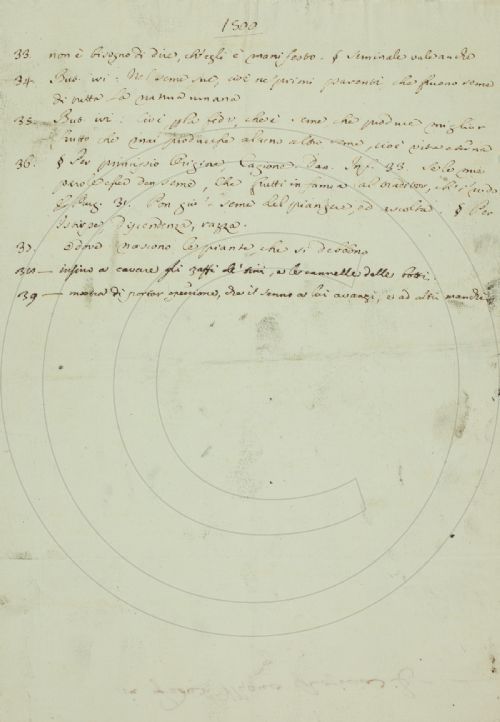 1500
33. non è bisogno di dire, ch'egli è manifesto. § seminale vale anche
34. But. ivi: Nel seme sue, cioè ne' primi parenti, che fuono seme
di tutta la natura umana
35. But. ivi: cioè più che è seme che produce miglior
frutto che mai producesse alcuno altro seme, cioè vita eterna
36. § Per principio Origine Cagione Dan. Inf. 33. Se le mie
parole esser den seme, Che frutti infamia al traditor, ch'i' rodo
§ Purg. 31. Pon giù il seme del piangere, ed ascolta. § Per
Discendenza, razza.
37. o dove nascono le piante che si debbono
38 — infino a cavare gli zaffi de' tini, e le cannelle delle botti.
39 — mostra di portar opinione, che il senno a lui avanzi, et ad altri manchi